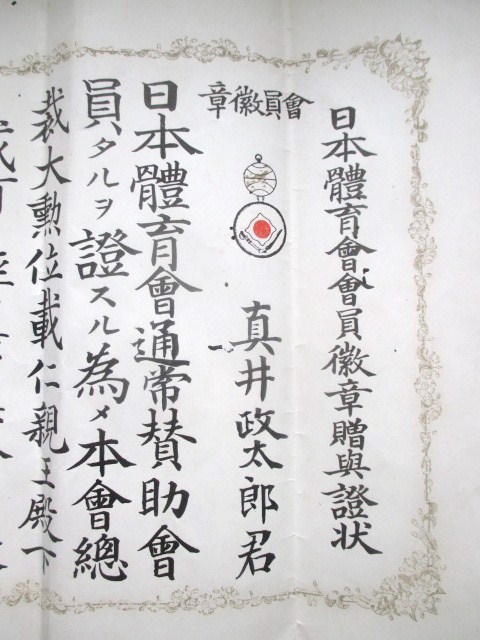 日本體育會會員徽章贈與證状
會員徽章
真井政太郎君
日本體育會通常賛助會
員タルヲ證スル為メ本會總
裁大勲位載仁親王殿下